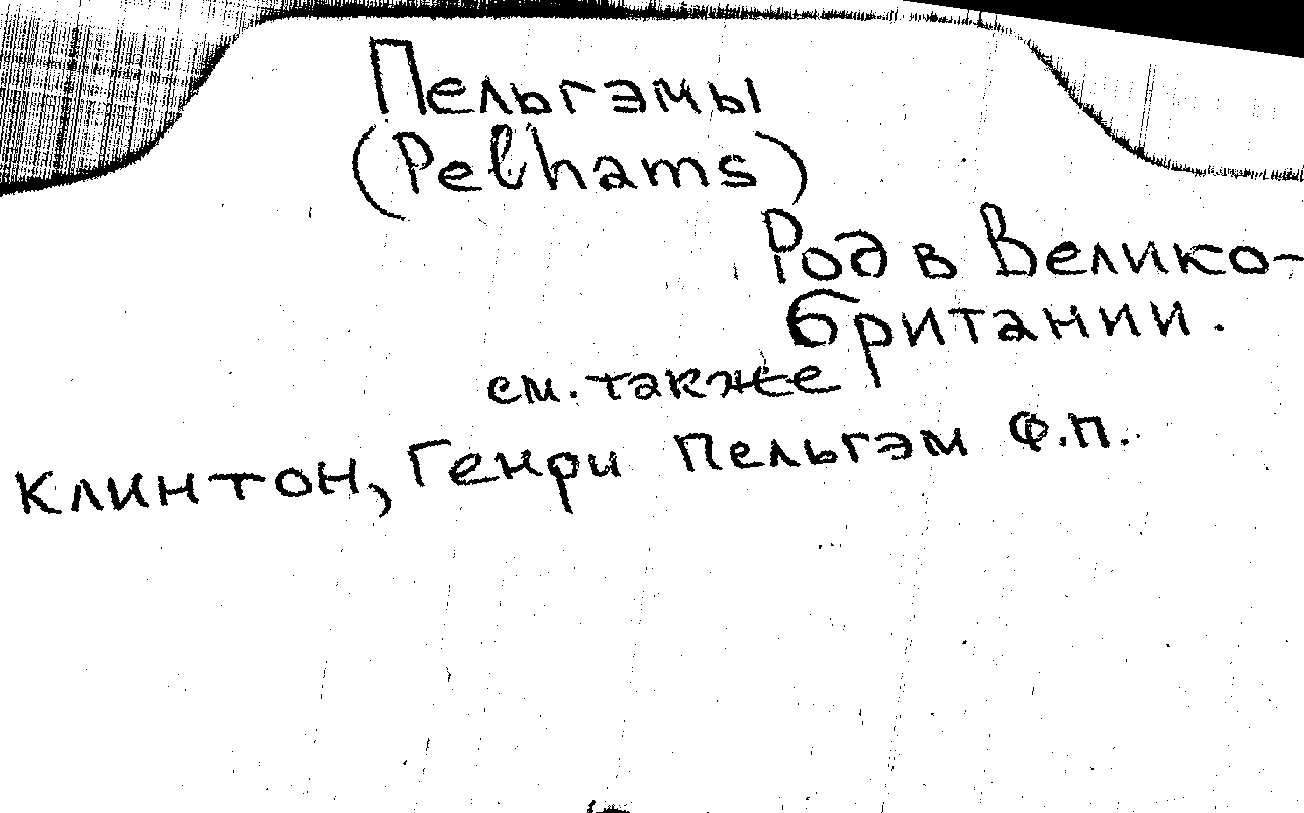 Пельгэмы
(Pelhams)
Род в Велико-
британии.
см. также
Клинтон, Генри Пельгэм Ф.П.